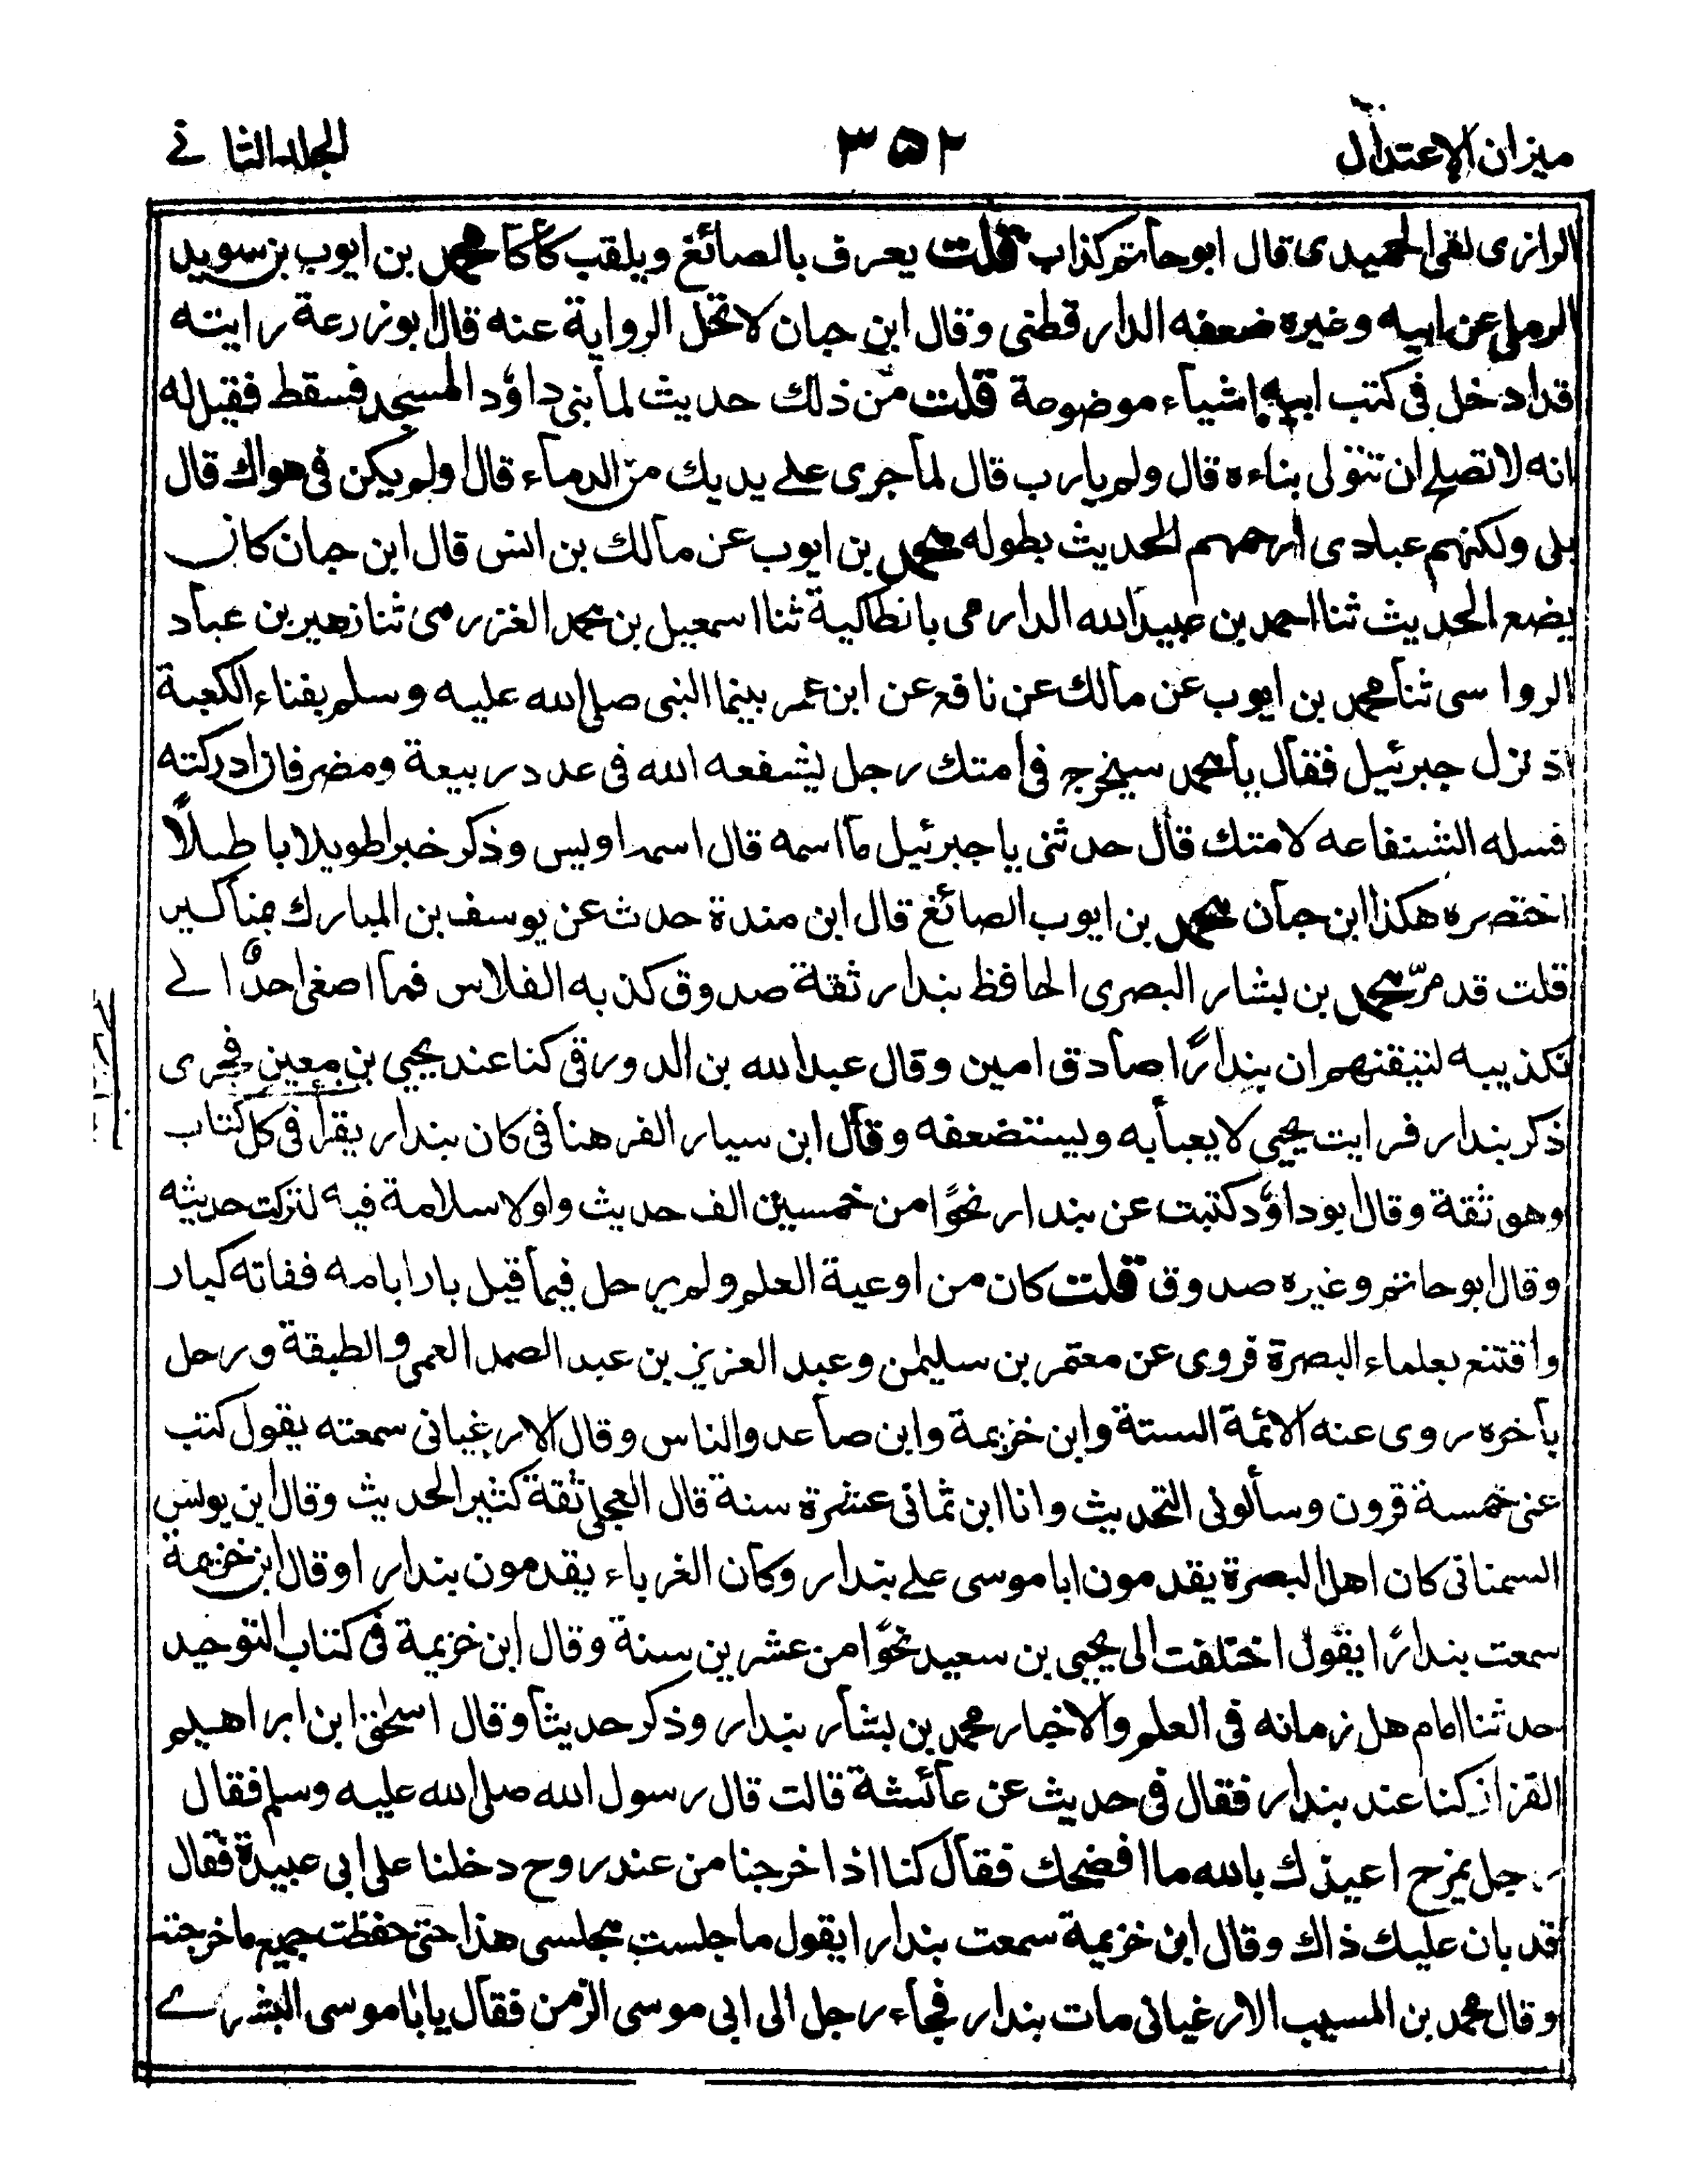 ميزان الاعتدال ٣٥٢ المجلد الثاني
الرازى لقى الحميدى قال ابو حاتم كذاب قلت يعرف بالصائغ ويلقب كأكا محمد بن ايوب بن سويد
الرملى عن ابيه وغيره ضعفه الدارقطنى وقال ابن حبان لا تحل الرواية عنه قال ابو زرعة رايته
قد ادخل فى كتب ابيه اشياء موضوعة قلت من ذلك حديث لما بنى داؤد المسجد فسقط فقيل له
انه لا تصلح ان تتولى بناءه قال ولم يا رب قال لما جرى على يديك من الدماء قال اولم يكن فى هواك قال
بلى ولكنهم عبادى ارحمهم الحديث بطوله محمد بن ايوب عن مالك بن انس قال ابن حبان كان
يضع الحديث ثنا احمد بن عبيد الله الدارمى بانطاكية ثنا اسمعيل بن محمد الغزرمى ثنا زهير بن عباد
الرواسى ثنا محمد بن ايوب عن مالك عن نافع عن ابن عمر بينما النبى صلى الله عليه وسلم بفناء الكعبة
اذ نزل جبرئيل فقال يا محمد سيخرج فى امتك رجل يشفعه الله فى عدد ربيعة ومضر فان ادركته
فسله الشفاعه لامتك قال حدثنى يا جبرئيل ما اسمه قال اسمه اويس وذكر خبرا طويلا باطلًا
اختصره هكذا ابن حبان محمد بن ايوب الصائغ قال ابن مندة حدث عن يوسف بن المبارك بمناكير
قلت قد مرّ محمد بن بشار البصرى الحافظ بندار ثقة صدوق كذبه الفلاس فما اصغى احدٌ الى
تكذيبه لتيقنهم ان بندارًا صادق امين وقال عبد الله بن الدورقى كنا عند يحيى بن معين فجرى
ذكر بندار فرايت يحيى لا يعبأ به ويستضعفه وقال ابن سيار الفرهنانى كان بندار يقرأ فى كل كتاب
وهو ثقة وقال ابو داؤد كتبت عن بندار نحوًا من خمسين الف حديث ولولا سلامة فيه لتركت حديثه
وقال ابو حاتم وغيره صدوق قلت كان من اوعية العلم ولم يرحل فيما قيل بارا بامه ففاته كبار
واقتنع بعلماء البصرة فروى عن معتمر بن سليمن وعبد العزيز بن عبد الصمد العمى والطبقة ورحل
بأخره روى عنه الائمة الستة وابن خزيمة وابن صاعد والناس وقال الارغيانى سمعته يقول كتب
عنى خمسة قرون وسألونى التحديث وانا ابن ثمانى عشرة سنة قال العجلى ثقة كثير الحديث وقال ابن يونس
السمنانى كان اهل البصرة يقدمون ابا موسى على بندار وكان الغرباء يقدمون بندارا وقال ابن خزيمة
سمعت بندارًا يقول اختلفت الى يحيى بن سعيد نحوًا من عشرين سنة وقال ابن خزيمة فى كتاب التوحيد
حدثنا امام هل زمانه فى العلم والاخبار محمد بن بشار بندار وذكر حديثا وقال اسحق ابن ابراهيم
القزاز كنا عند بندار فقال فى حديث عن عائشة قالت قال رسول الله صلى الله عليه وسلم فقال
رجل يمزح اعيذك بالله ما افضحك فقال كنا اذا خرجنا من عند روح دخلنا على ابى عبيدة فقال
قد بان عليك ذاك وقال ابن خزيمة سمعت بندارا يقول ما جلست مجلسى هذا حتى حفظت جميع ما خرجته
وقال محمد بن المسيب الارغيانى مات بندار فجاء رجل الى ابى موسى الزمن فقال يابا موسى البشرى